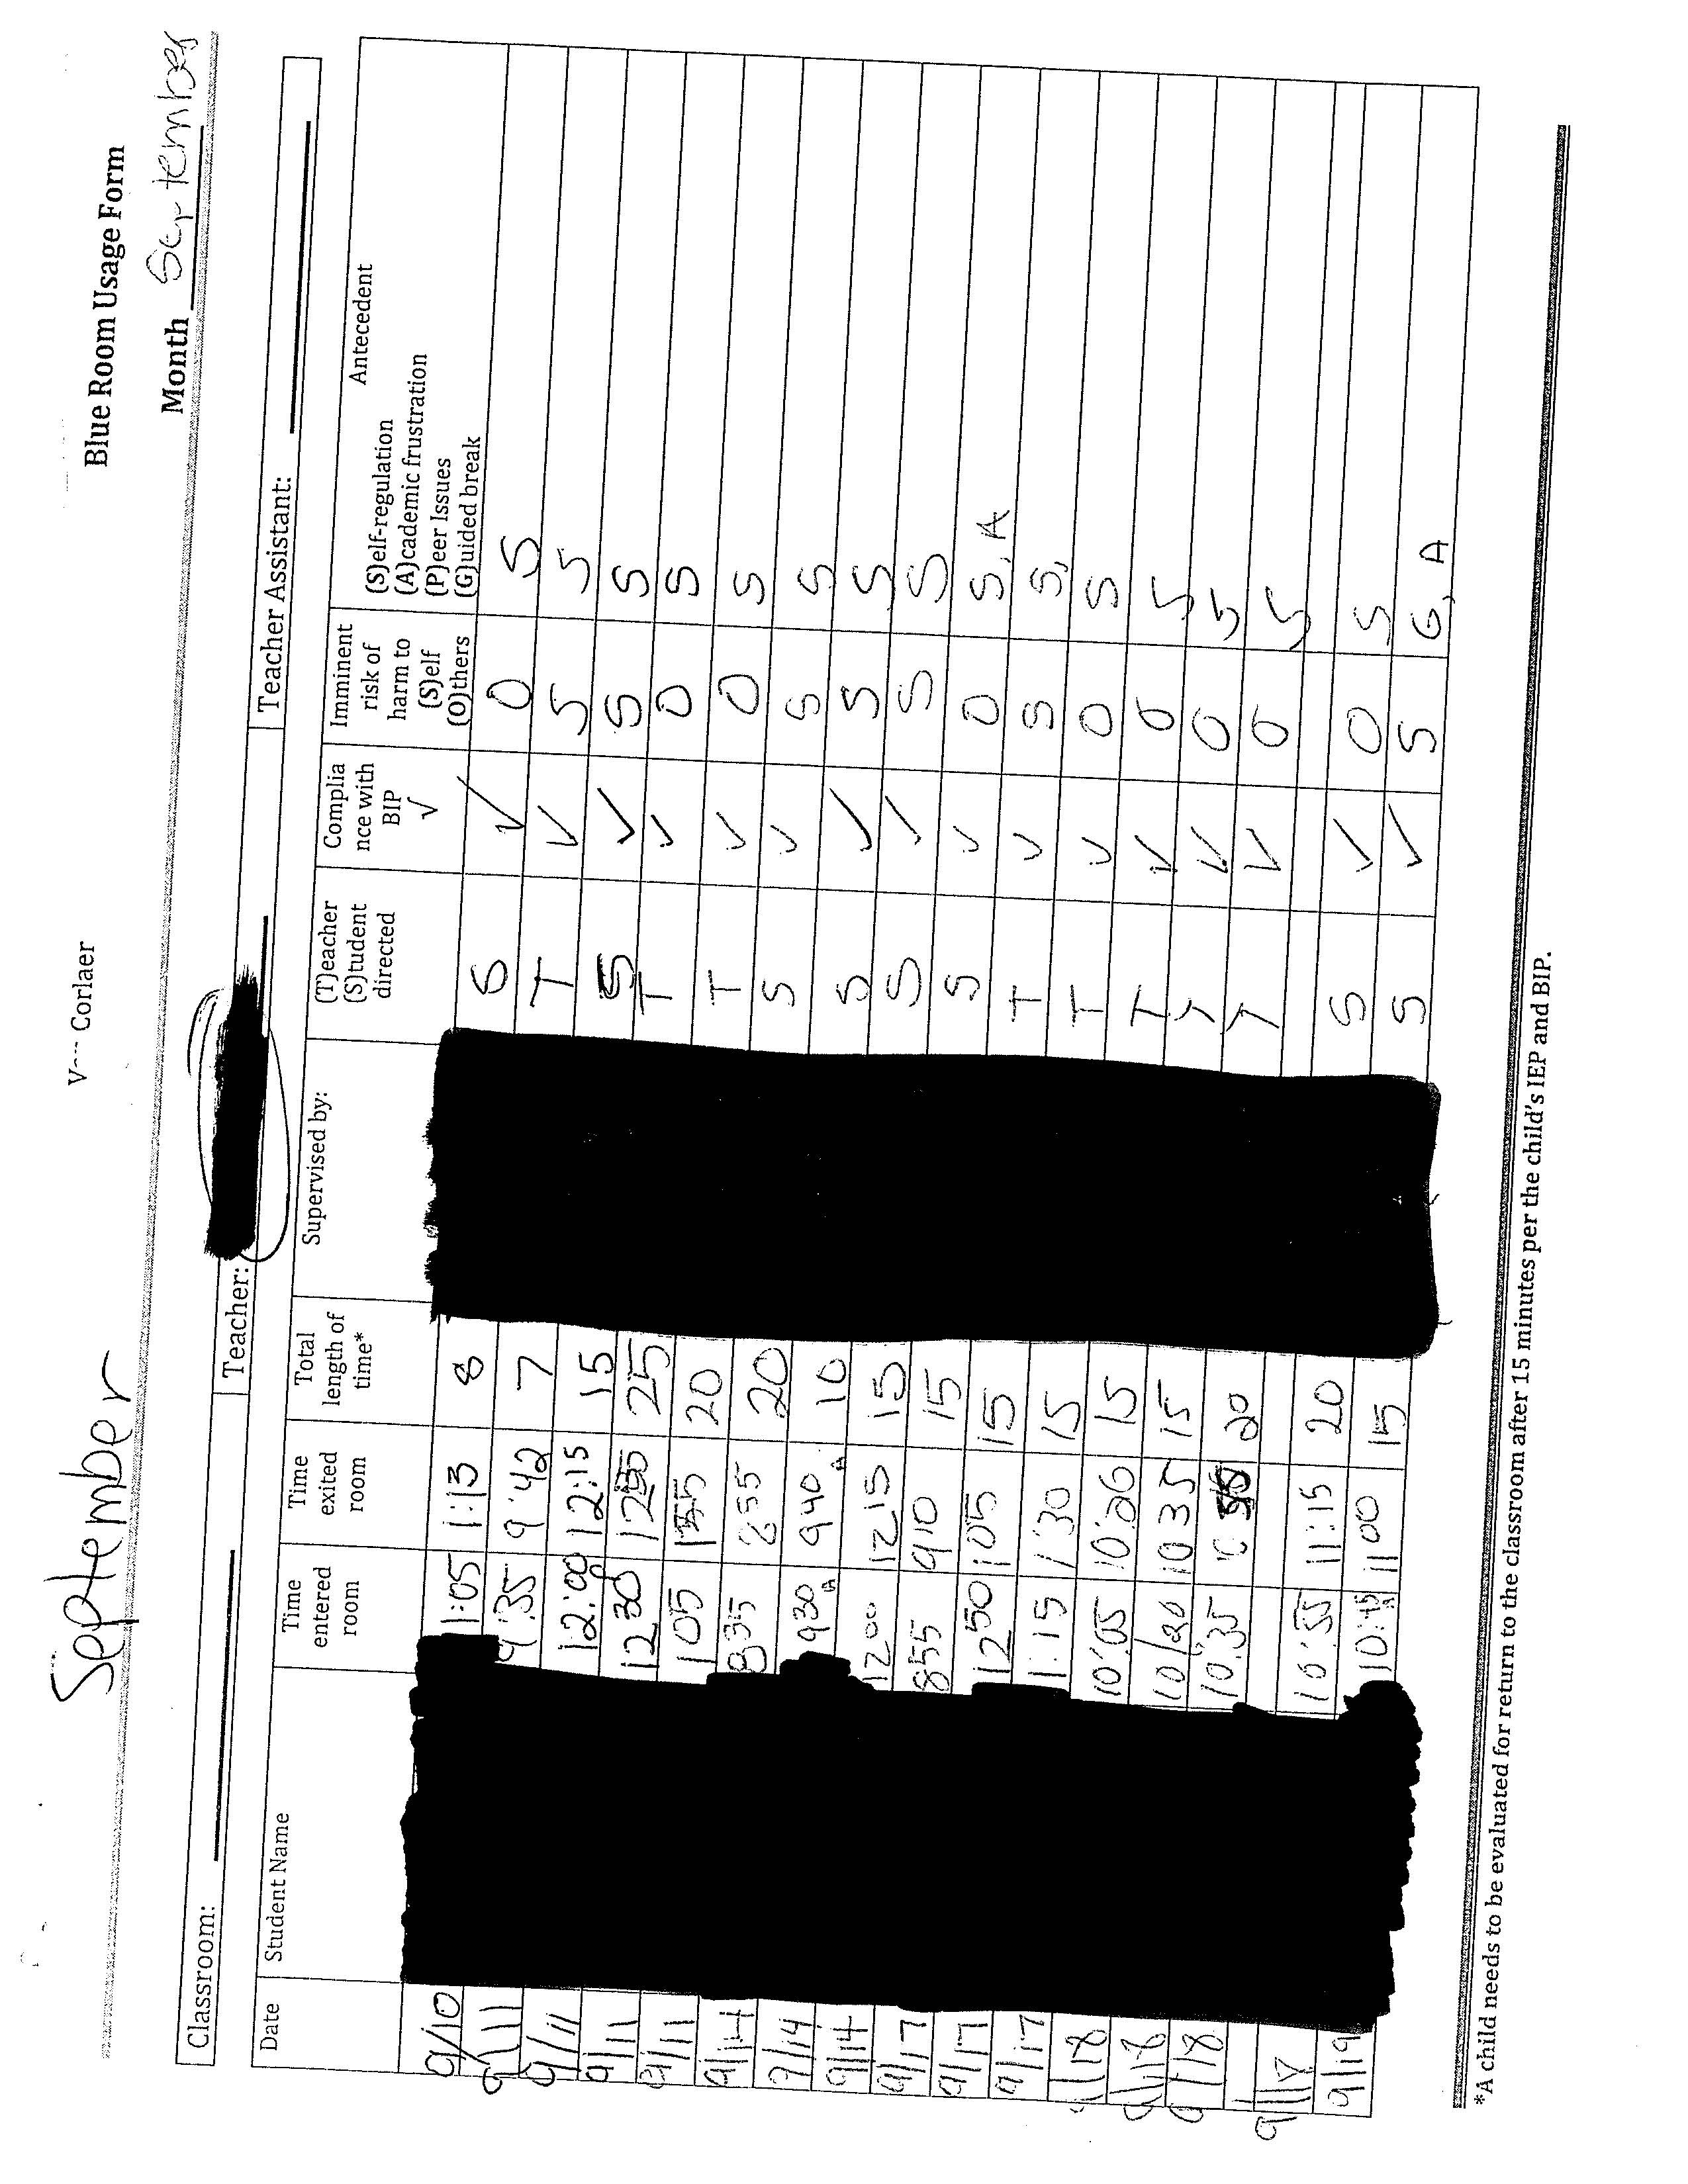 September
V--- Corlaer
Blue Room Usage Form
Month September
Classroom: Teacher: Teacher Assistant:
Date Student Name Time entered room Time exited room Total length of time* Supervised by: (T)eacher (S)tudent directed Complia nce with BIP √ Imminent risk of harm to (S)elf (O)thers Antecedent (S)elf-regulation (A)cademic frustration (P)eer Issues (G)uided break
9/10 1:05 1:13 8 S ✓ O S
9/11 9:35 9:42 7 T ✓ S S
9/11 12:00 12:15 15 S ✓ S S
9/11 1230 1255 25 T ✓ O S
9/11 105 20 T ✓ O S
9/14 835 855 20 S ✓ S S
9/14 930 940 10 S ✓ S S
9/14 1200 1215 15 S ✓ S S
9/17 855 910 15 S ✓ O S, A
9/17 1250 105 15 T ✓ S S,
9/17 1:15 1:30 15 T ✓ O S
9/18 10:05 10:26 15 T ✓ O S
9/18 10/20 1035 15 T ✓ O S
9/18 10:35 20 T ✓ O S
9/18 10:55 11:15 20 S ✓ O S
9/19 10:45 1100 15 S ✓ S G, A
*A child needs to be evaluated for return to the classroom after 15 minutes per the child's IEP and BIP.